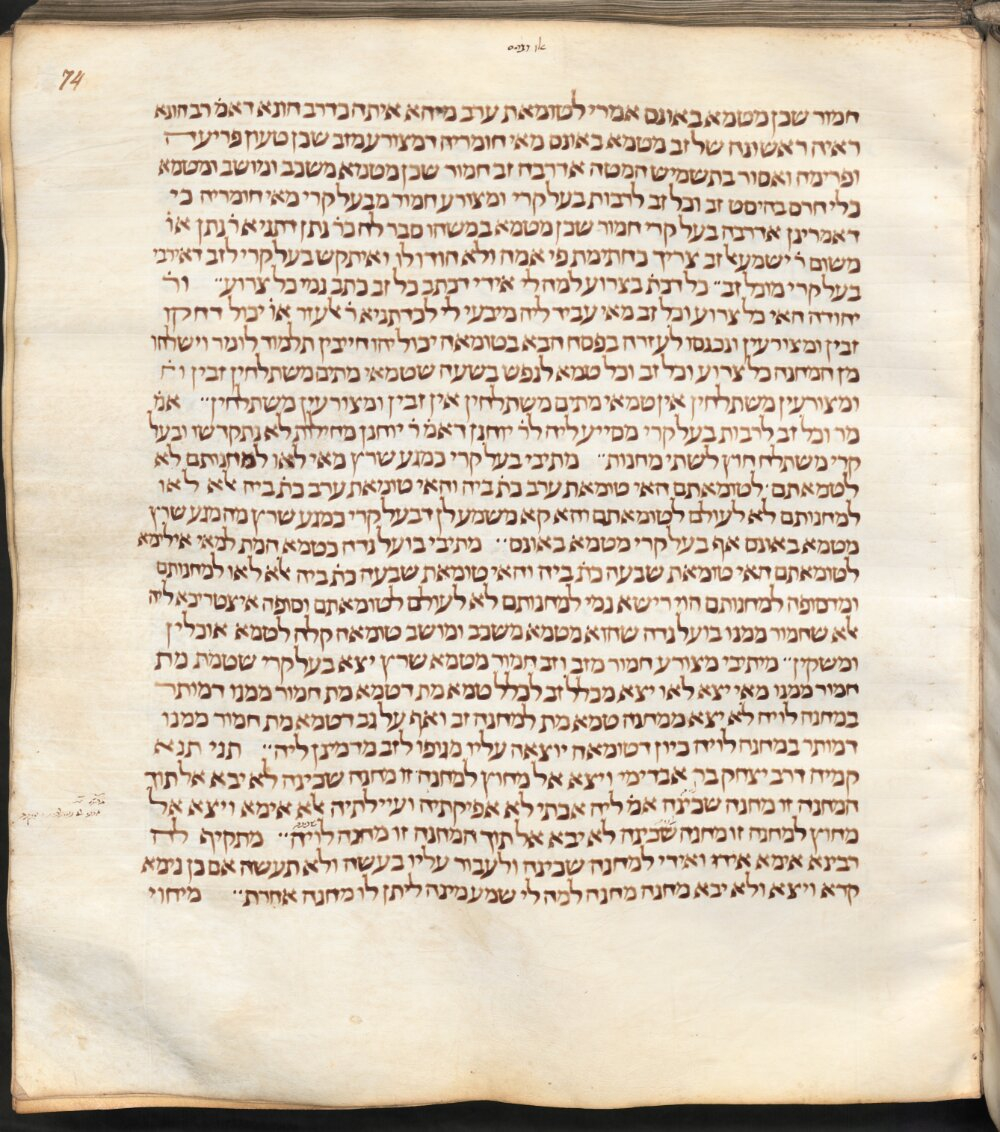 74
חמור שכן מטמא באונס אמרי לטומאת ערב מיהא איתה כדרב הונא דאמ׳ רב הונא
ראיה ראשונה של זב מטמא באונס מאי חומריה דמצורע מזב שכן טעון פריעה
ופרימה ואסור בתשמיש המטה אדרבה זב חמור שכן מטמא משכב ומושב ומטמא
כלי חרס בהיסט זב וכל זב לרבות בעל קרי ומצורע חמור מבעל קרי מאי חומריה כי
דאמרינן אדרבה בעל קרי חמור שכן מטמא במשהו סבר לה כר׳ נתן דתניא ר׳ נתן או׳
משום ר׳ ישמעאל זב צריך כחתימת פי אמה ולא הודו לו ואיתקש בעל קרי לזב דאירבי
בעל קרי מוכל זב״ כל דכת׳ בצרוע למה לי אידי דכתב כל זב כתב נמי כל צרוע״ ור׳
יהודה האי כל צרוע וכל זב מאי עביד ליה מיבעי לי לכדתניא ר׳ אלעזר או׳ יכול דחקו
זבין ומצורעין ונכנסו לעזרה בפסח הבא בטומאה יכול יהו חייבין תלמוד לומר וישלחו
מן המחנה כל צרוע וכל זב וכל טמא לנפש בשעה שטמאי מתים משתלחין זבין
ומצורעין משתלחין אין טמאי מתים משתלחין אין זבין ומצורעין משתלחין״ אמ׳
מר וכל זב לרבות בעל קרי מסייע ליה לר׳ יוחנן דאמ׳ ר׳ יוחנן מחילות לא נתקדשו ובעל
קרי משתלח חוץ לשתי מחנות״ מתיבי בעל קרי כמגע שרץ מאי לאו למחנותם לא
לטמאתם לטומאתם האי טומאת ערב כת׳ ביה והאי טומאת ערב כת׳ ביה אלא לאו
למחנותם לא לעולם לטומאתם והא קא משמע לן דבעל קרי כמגע שרץ מה מגע שרץ
מטמא באונס אף בעל קרי מטמא באונס״ מתיבי בועל נדה כטמא המת למאי אילימא
לטומאתם האי טומאת שבעה כת׳ ביה והאי טומאת שבעה כת׳ ביה אלא לאו למחנותם
ומדסופה למחנותם הוי רישא נמי למחנותם לא לעולם לטומאתם וסופה איצטריכא ליה
לא שחמור ממנו בועל נדה שהוא מטמא משכב ומושב טומאה קלה לטמא אוכלין
ומשקין״ מיתיבי מצורע חמור מזב וזב חמור מטמא שרץ יצא בעל קרי שטמת מת
חמור ממנו מאי יצא לאו יצא מכלל זב לכלל טמא מת דטמא מת חמור ממנו דמותר
במחנה לויה לא יצא ממחנה טמא מת למחנה זב ואף על גב דטמא מת חמור ממנו
דמותר במחנה לויה כיון דטומאה יוצאה עליו מגופו לזב מדמינן ליה״ תני תנא
קמיה דרב יצחק בר אבדימי ויצא אל מחוץ למחנה זו מחנה שכינה לא יבא אל תוך
המחנה זו מחנה שכינה אמ׳ ליה אבתי לא אפיקתיה ועיילתיה אלא אימא ויצא אל
מחוץ למחנה זו מחנה שכינה לא יבא אל תוך המחנה זו מחנה לויה״ מתקיף לה
רבינא אימא אידי ואידי למחנה שכינה ולעבור עליו בעשה ולא תעשה אם כן נימא
קרא ויצא ולא יבא מחנה מחנה למה לי שמע מינה ליתן לו מחנה אחרת״ מיחוי